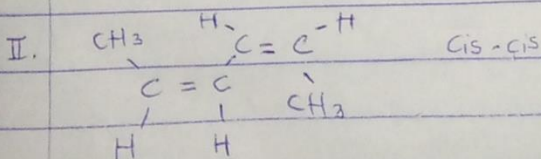 II. CH3 H C = C H Cis - Cis
C = C CH3
H H